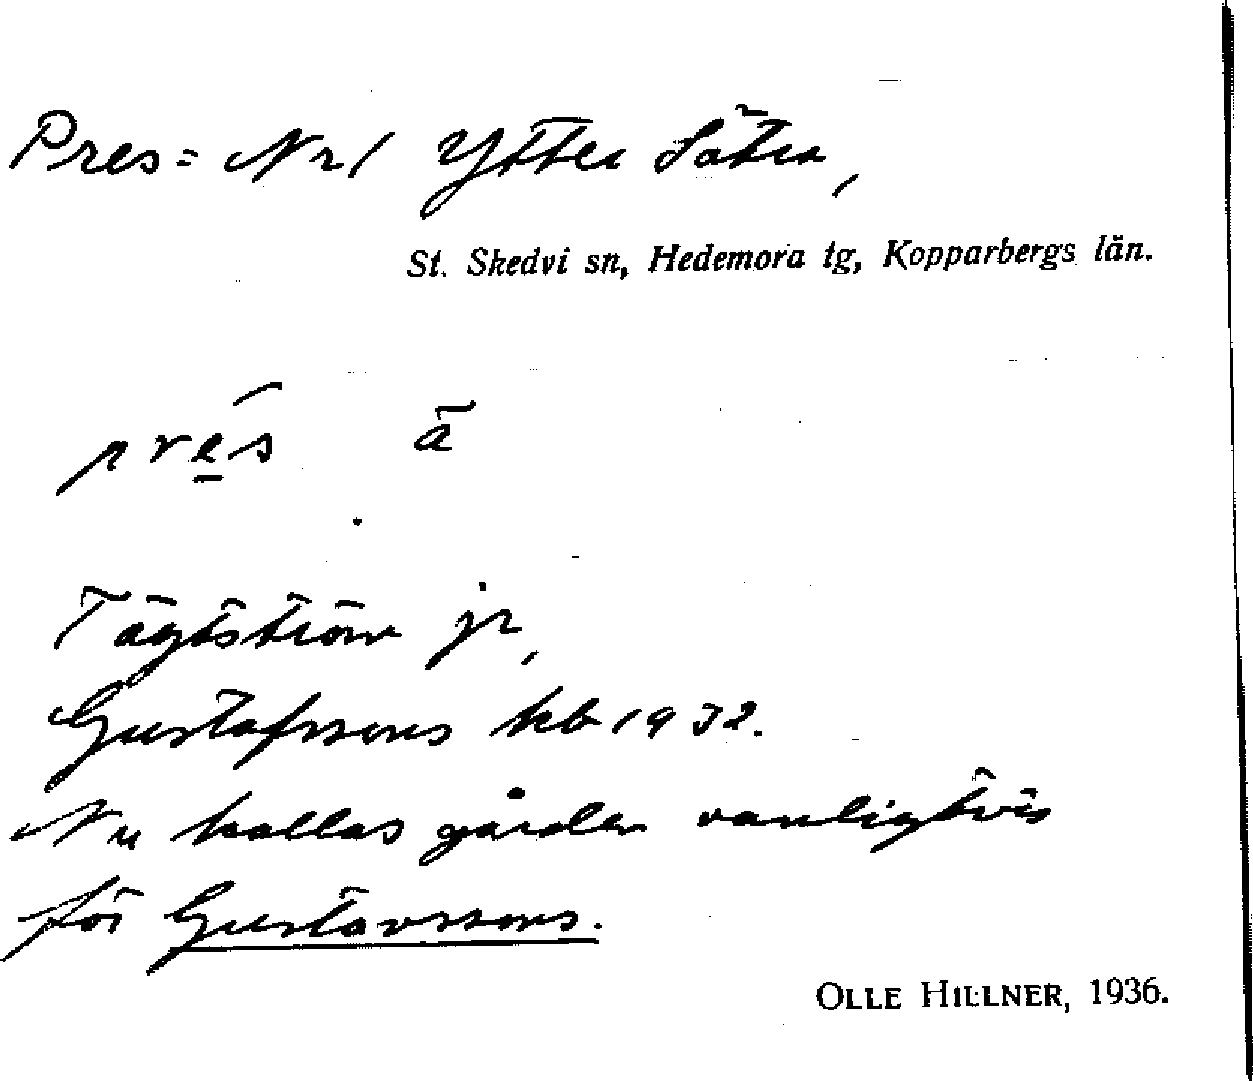 Pres= Nr 1 Ytter Sätra,
St. Skedvi sn, Hedemora tg, Kopparbergs län.
pres a
Tägtström jr,
Gustafssons kb 1932.
Nu kallas gården vanligtvis
för Gustavssons.
OLLE HILLNER, 1936.